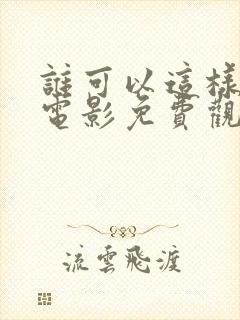 誰可以這樣
電影免費觀
流雲飛渡